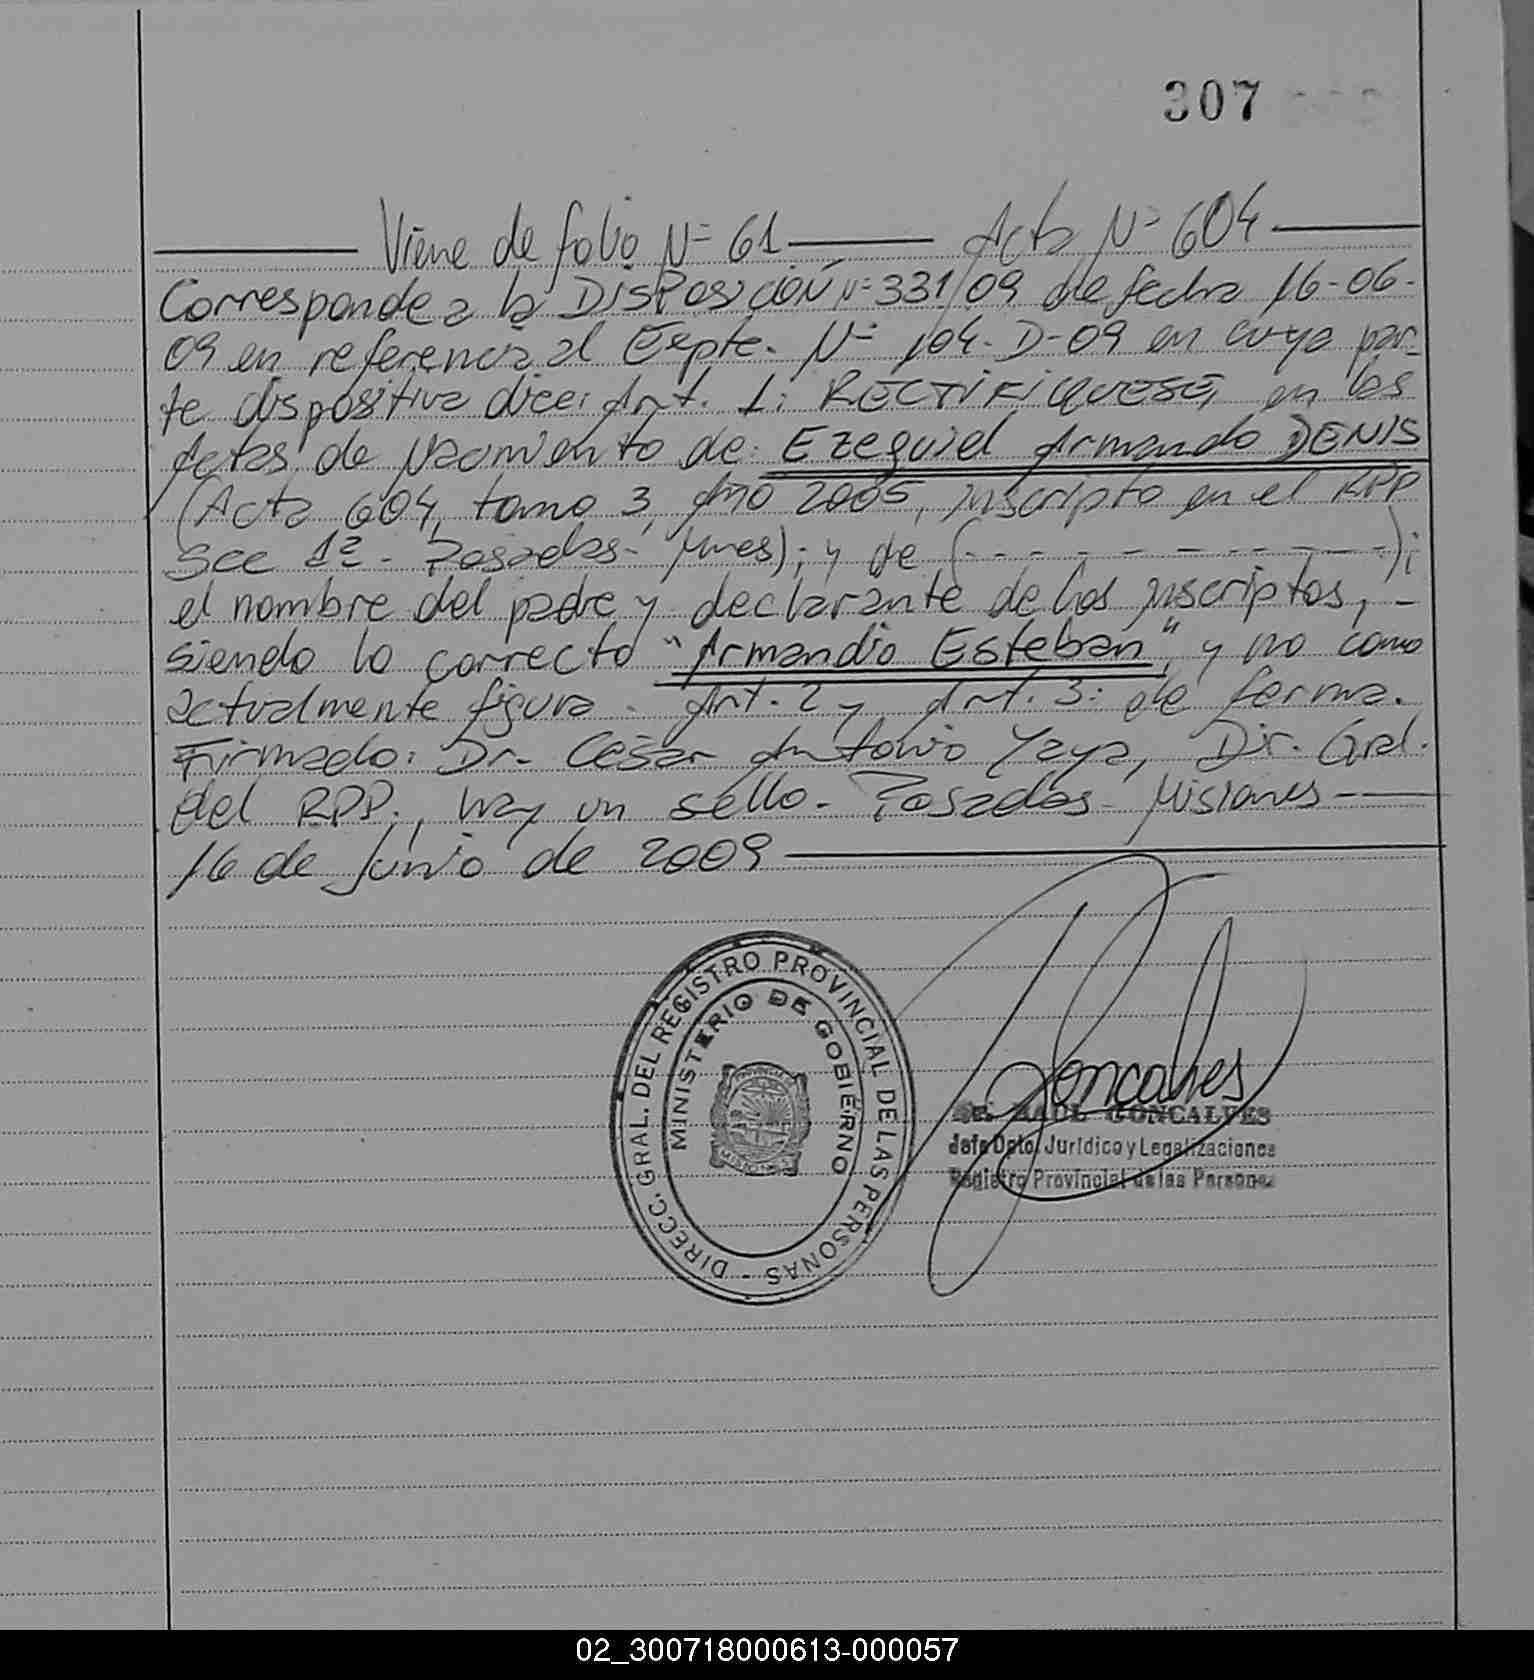 307
Viene de folio Nº 61 Acta Nº 604
Corresponde a la DISPOSICIÓN Nº 331/09 de fecha 16-06-
09 en referencia al Expte. Nº 104-D-09 en cuya par-
te dispositiva dice: Art. 1: RECTIFIQUESE, en las
Actas de Nacimiento de: Ezequiel Armando DENIS
(Acta 604, tomo 3, Año 2005, inscripto en el RPP
Sec 1ª - Posadas - Mnes); y de (- - - - - - - - -);
el nombre del padre y declarante de los inscriptos, -
siendo lo correcto "Armandio Esteban", y no como
actualmente figura. Art. 2 y Art. 3: de forma.
Firmado: Dr. César Antonio Yaya, Dir. Gral.
del RPP., hay un sello. Posadas Misiones
16 de Junio de 2009
DIRECC. GRAL. DEL REGISTRO PROVINCIAL DE LAS PERSONAS -
MINISTERIO DE GOBIERNO
PROVINCIA DE
MISIONES
Goncalves
Sr. RAUL GONCALVES
Jefe Dpto. Jurídico y Legalizaciones
Registro Provincial de las Personas
02_300718000613-000057